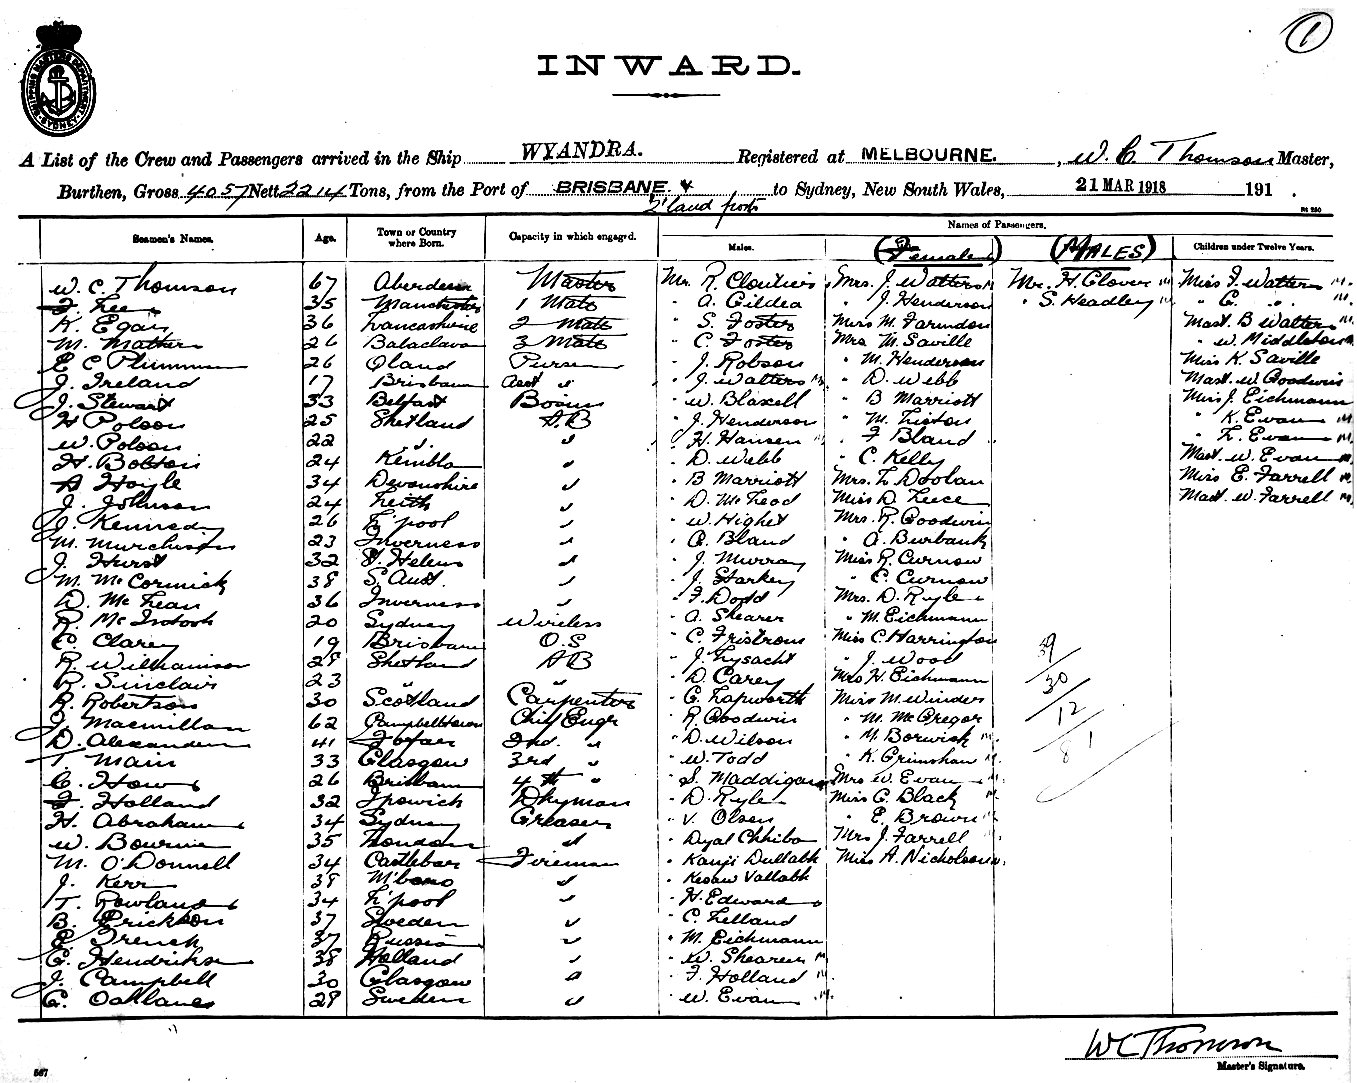 1
INWARD.
SHIPPING MASTERS DEPARTMENT SYDNEY
A List of the Crew and Passengers arrived in the Ship WYANDRA. Registered at MELBOURNE. , W. C. Thomson Master,
Burthen, Gross 4057 Nett 2214 Tons, from the Port of BRISBANE. & to Sydney, New South Wales, 21 MAR 1918 191 .
Q'land ports
Seamen's Names. Age. Town or Country where Born. Capacity in which engaged. Names of Passengers.
Males. (Females) (MALES) Children under Twelve Years.
W. C. Thomson 67 Aberdeen Master Mr. R. Cloutier Mrs. J. Watters M Mr. H. Glover M Miss J. Watters M.
F. Lee 35 Manchester 1 Mate " A. Gildea " J. Henderson " S. Headley M " C. " M.
K. Egan 36 Lancashire 2 Mate " S. Foster Miss M. Farindon Mast. B Watters M.
M. Mather 26 Balaclava 3 Mate " C. Foster Mrs M. Saville " W. Middleton
E C Plummer 26 Oland Purser " J. Robson " M. Henderson Miss K. Saville
J. Ireland 17 Brisbane Asst " " J. Watters M. " D. Webb Mast. W. Goodwin
J. Stewart 33 Belfast Bosun " W. Blaxell " B Marriott Miss J. Eichmann
H Polson 25 Shetland A.B " J. Henderson " M. " K. Evan M
W. Polson 22 " " " H. Hansen M " F Bland " L. Evan M
H. Bolton 24 Kembla " " D. Webb " C. Kelly Mast. W. Evan M
A Hoyle 34 Devonshire " " B Marriott Mrs. L Doolan Miss E. Farrell M
J. Johnson 24 Leith " " D. McLeod Miss D. Leece Mast W. Farrell M.
J. Kennedy 26 L'pool " " W. Highet Mrs. R. Goodwin
M. Murchison 23 Inverness " " G. Bland " A. Burbank
J. Hurst 32 St. Helens " " J. Murray Miss R. Curnow
M. McCormick 38 S. Aust. " " J. Starkey " E. Curnow
D. McLean 36 Inverness " " J. Dodd Mrs. D. Ryle
R. McIntosh 20 Sydney Wireless " A. Shearer " M. Eichmann
C. Clarey 19 Brisbane O.S " C. Tristrom Miss C Harrington
R. Williamson 28 Shetland AB " J. Lysacht " J. Wood
R. Sinclair 23 " " " D. Carey Mrs H. Eichmann
R. Robertson 30 Scotland Carpenter " G. Lapworth Miss M. Winders
J. Macmillan 62 Campbelltown Chief Engr " R. Goodwin " M. McGregor
D. Alexander 41 Forfar 2nd. " " D. Wilson " M. Borwick M.
T. Main 33 Glasgow 3rd " " W. Todd " K. Grimshaw M.
C. How 26 Brisbane 4th " " S. Maddigan Mrs W. Evan M.
F. Holland 32 Ipswich Dkyman " D. Ryle Miss C. Black M.
H. Abraham 34 Sydney Greaser " V. Olsen " E. Brown M.
W. Bourne 35 London " " Dyal Chhiba Mrs J. Farrell
M. O'Donnell 34 Castlebar Fireman " Kanji Dullabh Miss A. Nicholson M.
J. Kerr 38 M'boro " " Kesaw Vallabh
T. Rowland 34 L'pool " " H. Edward
B. Erickson 37 Sweden " " C. Lelland
E. French 37 Russia " " M. Eichmann
G. Hendrikse 38 Holland " " W. Shearer M
J. Campbell 30 Glasgow " " F. Holland M.
G. Oaklane 28 Sweden " " W. Evan M.
39
30
12
81
WC Thomson
Master's Signature.
567